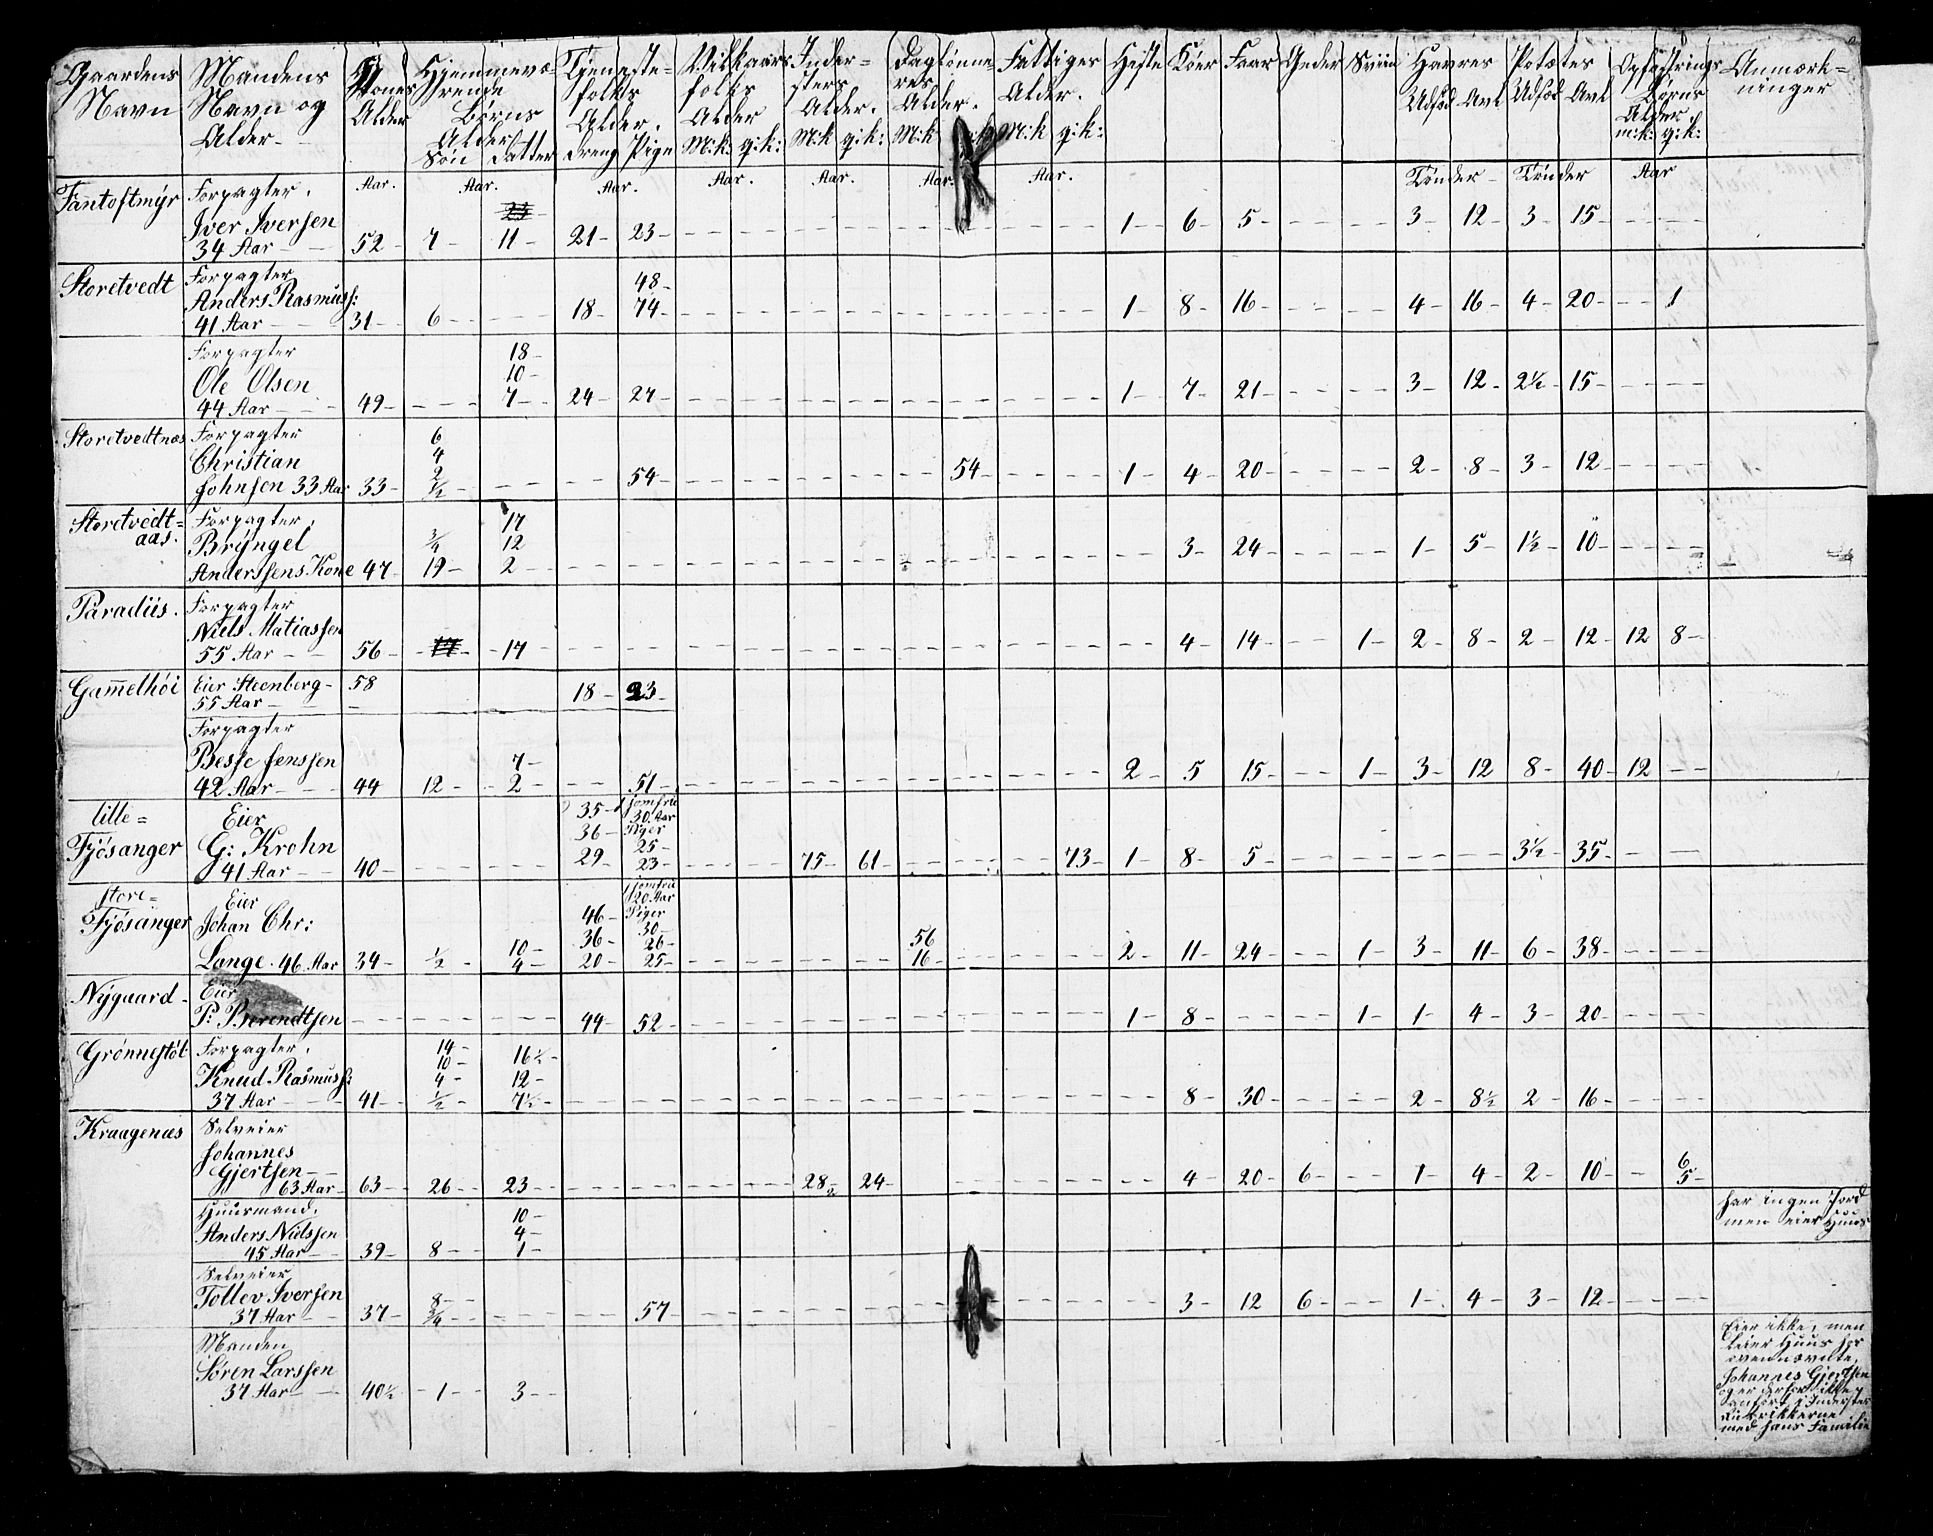 Gaardens Navn | Mandens Navn og Alder | Kones Alder | Hjemmevæ-rende Børns Alder Søn Datter | Tjeneste-folks Alder. Dreng Pige | Vilkaars folks Alder M:k: q:k: | Inder-sters Alder. M:k q:k: | Daglønne-res Alder. M:k | Fattiges Alder. M:k q:k: | Heste | Køer | Faar | Gjeder | Sviin | Havres Udsæd Avl | Potetes Udsæd Avl | Opfostrings Børns Alder m:k: q:k: | Anmærk-ninger
Aar. | Aar. | Aar. | Aar. | Aar. | Aar. | Aar. | Tønder | Tønder | Aar
Fantoftmÿr | Forpagter.
23
Iver Iversen
34 Aar | 52 | 7 | 11 | 21 | 23 | 1 | 6 | 5 | 3 | 12 | 3 | 15
Storetvedt | Forpagter
48
Anders Rasmuss:
41 Aar | 31 | 6 | 18 | 74 | 1 | 8 | 16 | 4 | 16 | 4 | 20 | 1
Forpagter | 18
Ole Olsen | 10
44 Aar | 49 | 7 | 24 | 27 | 1 | 7 | 21 | 3 | 12 | 2½ | 15
Storetvedtnæs | Forpagter | 6
Christian | 4
2
Johnsen 33 Aar | 33 | ½ | 54 | 54 | 1 | 4 | 20 | 2 | 8 | 3 | 12
Storetvedt=aas. | Forpagter. | 17
Brÿngel | ¾ | 12
Anderssens Kone | 47 | 19 | 2 | 3 | 24 | 1 | 5 | 1½ | 10
Paradiis. | Forpagter
Niels Matiassen
55 Aar | 56 | 17 | 17 | 4 | 14 | 1 | 2 | 8 | 2 | 12 | 12 | 8
Gam̄elhöi | Eier Steenberg | 58 | 18 | 23
55 Aar
Forpagter
Besse Jenssen | 7
42 Aar | 44 | 12 | 2 | 51 | 2 | 5 | 15 | 1 | 3 | 12 | 8 | 40 | 12
lille= | Eier | 35 | 1 Jomfrue 30 Aar
Fjösanger | G: Krohn | 36 | Piger 25
41 Aar | 40 | 29 | 23 | 75 | 61 | 73 | 1 | 8 | 5 | 3½ | 35
store= | Eier | 1 Jomfrue 20 Aar
Fjösanger | Johan Chr: | 46 | Piger 30
10 | 36 | 26 | 56
Lange. 46 Aar | 34 | ½ | 4 | 20 | 25 | 16 | 2 | 11 | 24 | 1 | 3 | 11 | 6 | 38
Nÿgaard | Eier
P: Berendtsen | 44 | 52 | 1 | 8 | 1 | 1 | 4 | 3 | 20
Grönnestöl | Forpagter. | 14 | 16½
10
Knud Rasmuss: | 4 | 12
37 Aar | 41 | ½ | 7½ | 8 | 30 | 2 | 8½ | 2 | 16
Kraagenæs | Selveier
Johannes
Gjertsen | 6
63 Aar | 63 | 26 | 23 | 28 2 | 24 | 4 | 20 | 6 | 1 | 4 | 2 | 10 | 5
Huusmand. | 10 | har ingen Jord
Anders Nielssen | 4 | men eier Huus
45 Aar | 39 | 8 | 1
Selveier
Tollev Iversen | 8
37 Aar | 37 | ¾ | 57 | 3 | 12 | 6 | 1 | 4 | 3 | 12
Manden
Søren Larssen
37 Aar | 40½ | 1 | 3
Eier ikke, men
leier Huus hos
ovennævnte,
Johannes Gjertsen
og er derfor ikke
anført i Inderster
Rubrikkerne
med hans Familie